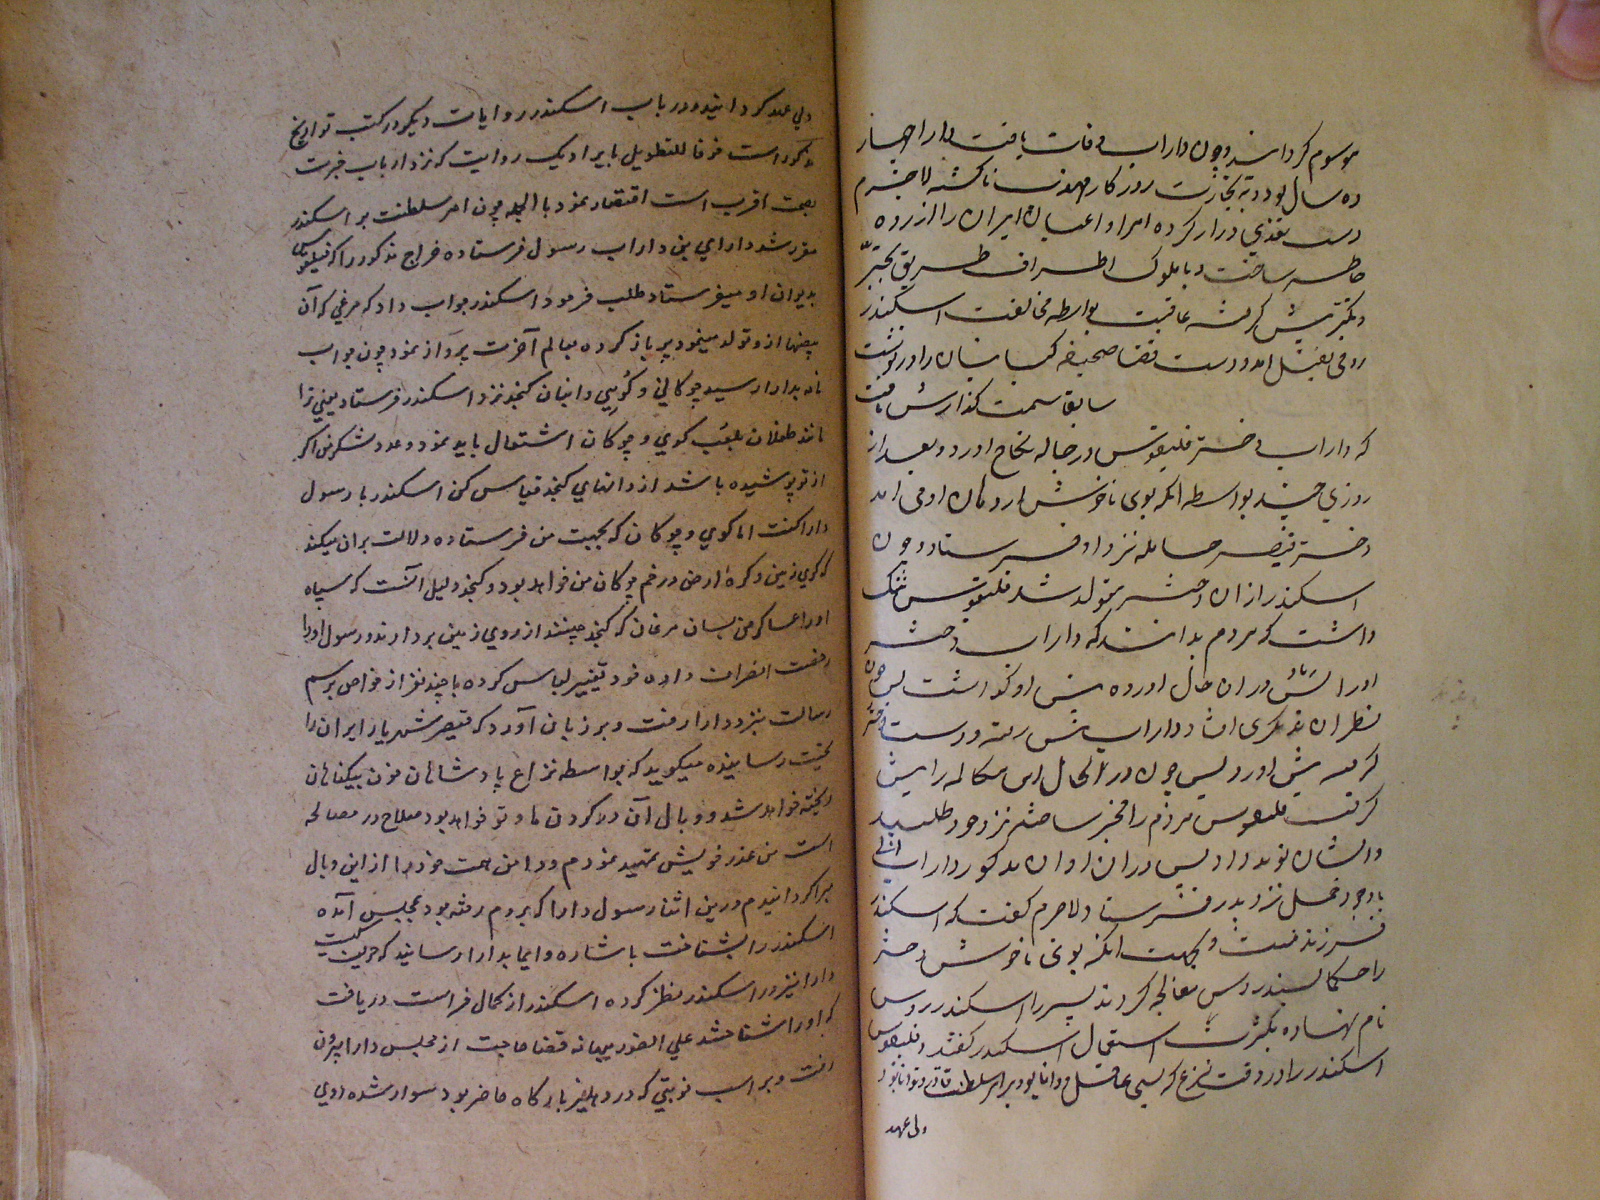 موسوم کردانید و چون داراب وفات یافت دارا
ده سال بود و به تجارت روزکار مهذب ناکشته لاجرم
دست تعدی دراز کرده امرا و اعیان ایران را آزرده
خاطر ساخت و با ملوک اطراف طریق تجبر
و تکبر پیش کرفته عاقبت بواسطه مخالفت اسکندر
رومی بقتل آمد و دست قضا صحیفه کیانیان را درنوشت
سابقا سمت کذارش یافت
که داراب دختر فیلقوس در حباله نکاح آورد و بعد از
روزی چند بواسطه آنکه بوی ناخوش از دهان او می آمد
دختر قیصر حامله نزد او فرستاد و چون
اسکندر ازان دختر متولد شد فیلقوس ننک
داشت که مردم بدانند که داراب دختر
اورا در ان حال آورده پیش او کذاشت پس چون
نظر ان بر افتاد داراب پیش رفته و دست
کرفته پیش اورد در الحال این مکالمه را پیش
کرفت فیلقوس مردم را مخبر ساخته نزد خود طلبید
دران اوان مذکور داراب
باوجود حمل نزد پدر فرستاد لاجرم کفت که اسکندر
فرزند منست و بجهت آنکه بوی ناخوش دختر
را حکما بسندروس معالجه کردند پسر را اسکندروس
نام نهاده بکثرت استعمال اسکندر کفتند و فیلقوس
اسکندر را در وقت نزع که بسی عاقل و دانا بود بر امر سلطنت قادر و توانا بود
ولی عهد
ولی عهد کردانید و در باب اسکندر روایات دیکر در کتب تواریخ
مذکور است خوفا للتطویل بایراد یک روایت که نزد ارباب خبرت
بصحت اقرب است اقتصار نمود بالجمله چون امر سلطنت بر اسکندر
مقرر شد دارای بن داراب رسول فرستاده خراج مذکور را که فیلقوس
بدیوان او میفرستاد طلب فرمود اسکندر جواب داد که مرغی که آن
بیضها ازو تولد مینمود پر باز کرده بعالم آخرت پرواز نمود چون جواب
نامه بدارا رسید چوکانی و کویی و انبان کنجد نزد اسکندر فرستاد یعنی ترا
مانند طفلان بلعب کوی و چوکان اشتغال باید نمود و عدد لشکر من اکر
از تو پوشیده باشد از دانهای کنجد قیاس کن اسکندر با رسول
دارا کفت اما کوی و چوکان که بجهت من فرستاده دلالت بران میکند
که کوی زمین و کرهٔ ارض در خم چوکان من خواهد بود و کنجد دلیل آنست که سپاه
اورا عساکر من بسان مرغان که کنجد چینند از روی زمین بردارند و رسول اورا
رخصت انصراف داده خود تغییر لباس کرده با چند نفر از خواص برسم
رسالت بنزد دارا رفت و بر زبان آورد که قیصر شهریار ایران را
تحیت رسانیده میکوید که بواسطه نزاع پادشاهان خون بیکناهان
ریخته خواهد شد و وبال آن در کردن ما و تو خواهد بود صلاح در مصالحه
است من عذر خویش تمهید نمودم و دامن همت خود را از این وبال
مبرا کردانیدم درین اثنا رسول دارا که بروم رفته بود بمجلس آمده
اسکندر را بشناخت باشاره و ایما بدارا رسانید که حریف کیست
دارا نیز در اسکندر نظر کرده اسکندر از کمال فراست دریافت
که اورا شناختند علی الفور ببهانه قضا حاجت از مجلس دارا بیرون
رفت و بر اسب نوبتی که در دهلیز بارکاه حاضر بود سوار شده روی